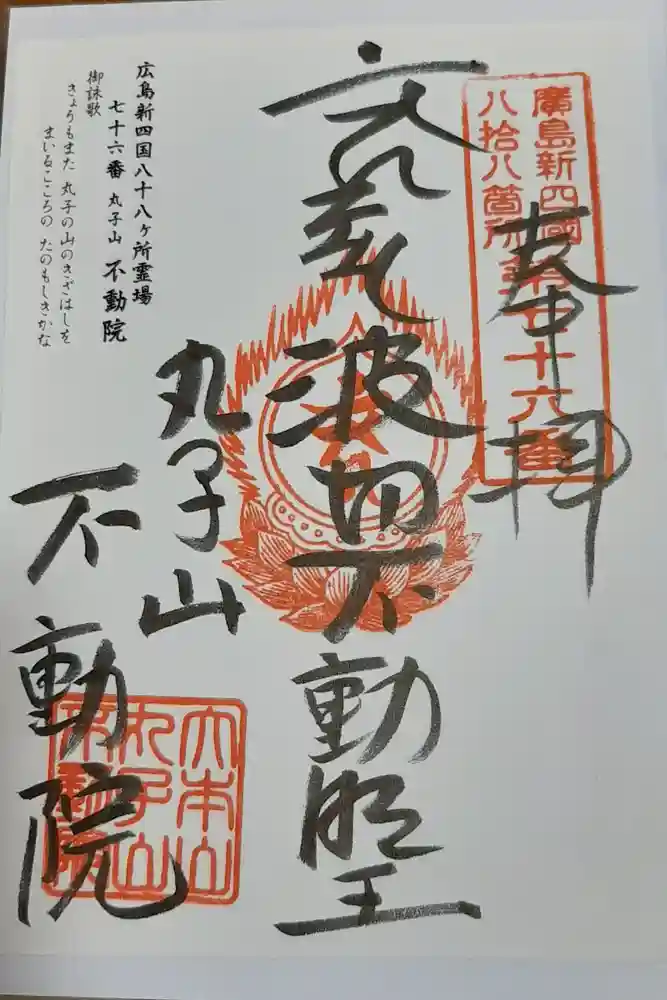 廣島新四國
八拾八箇所第七十六番
奉拝
波切不動明王
広島新四国八十八ヶ所霊場
七十六番 丸子山 不動院
御詠歌
きょうもまた 丸子の山のきざはしを
まいるこころの たのもしきかな
丸子山
不動院
大本山
丸子山
不動院